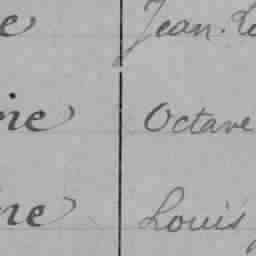 e Jean-
ie Octave
ne Louis